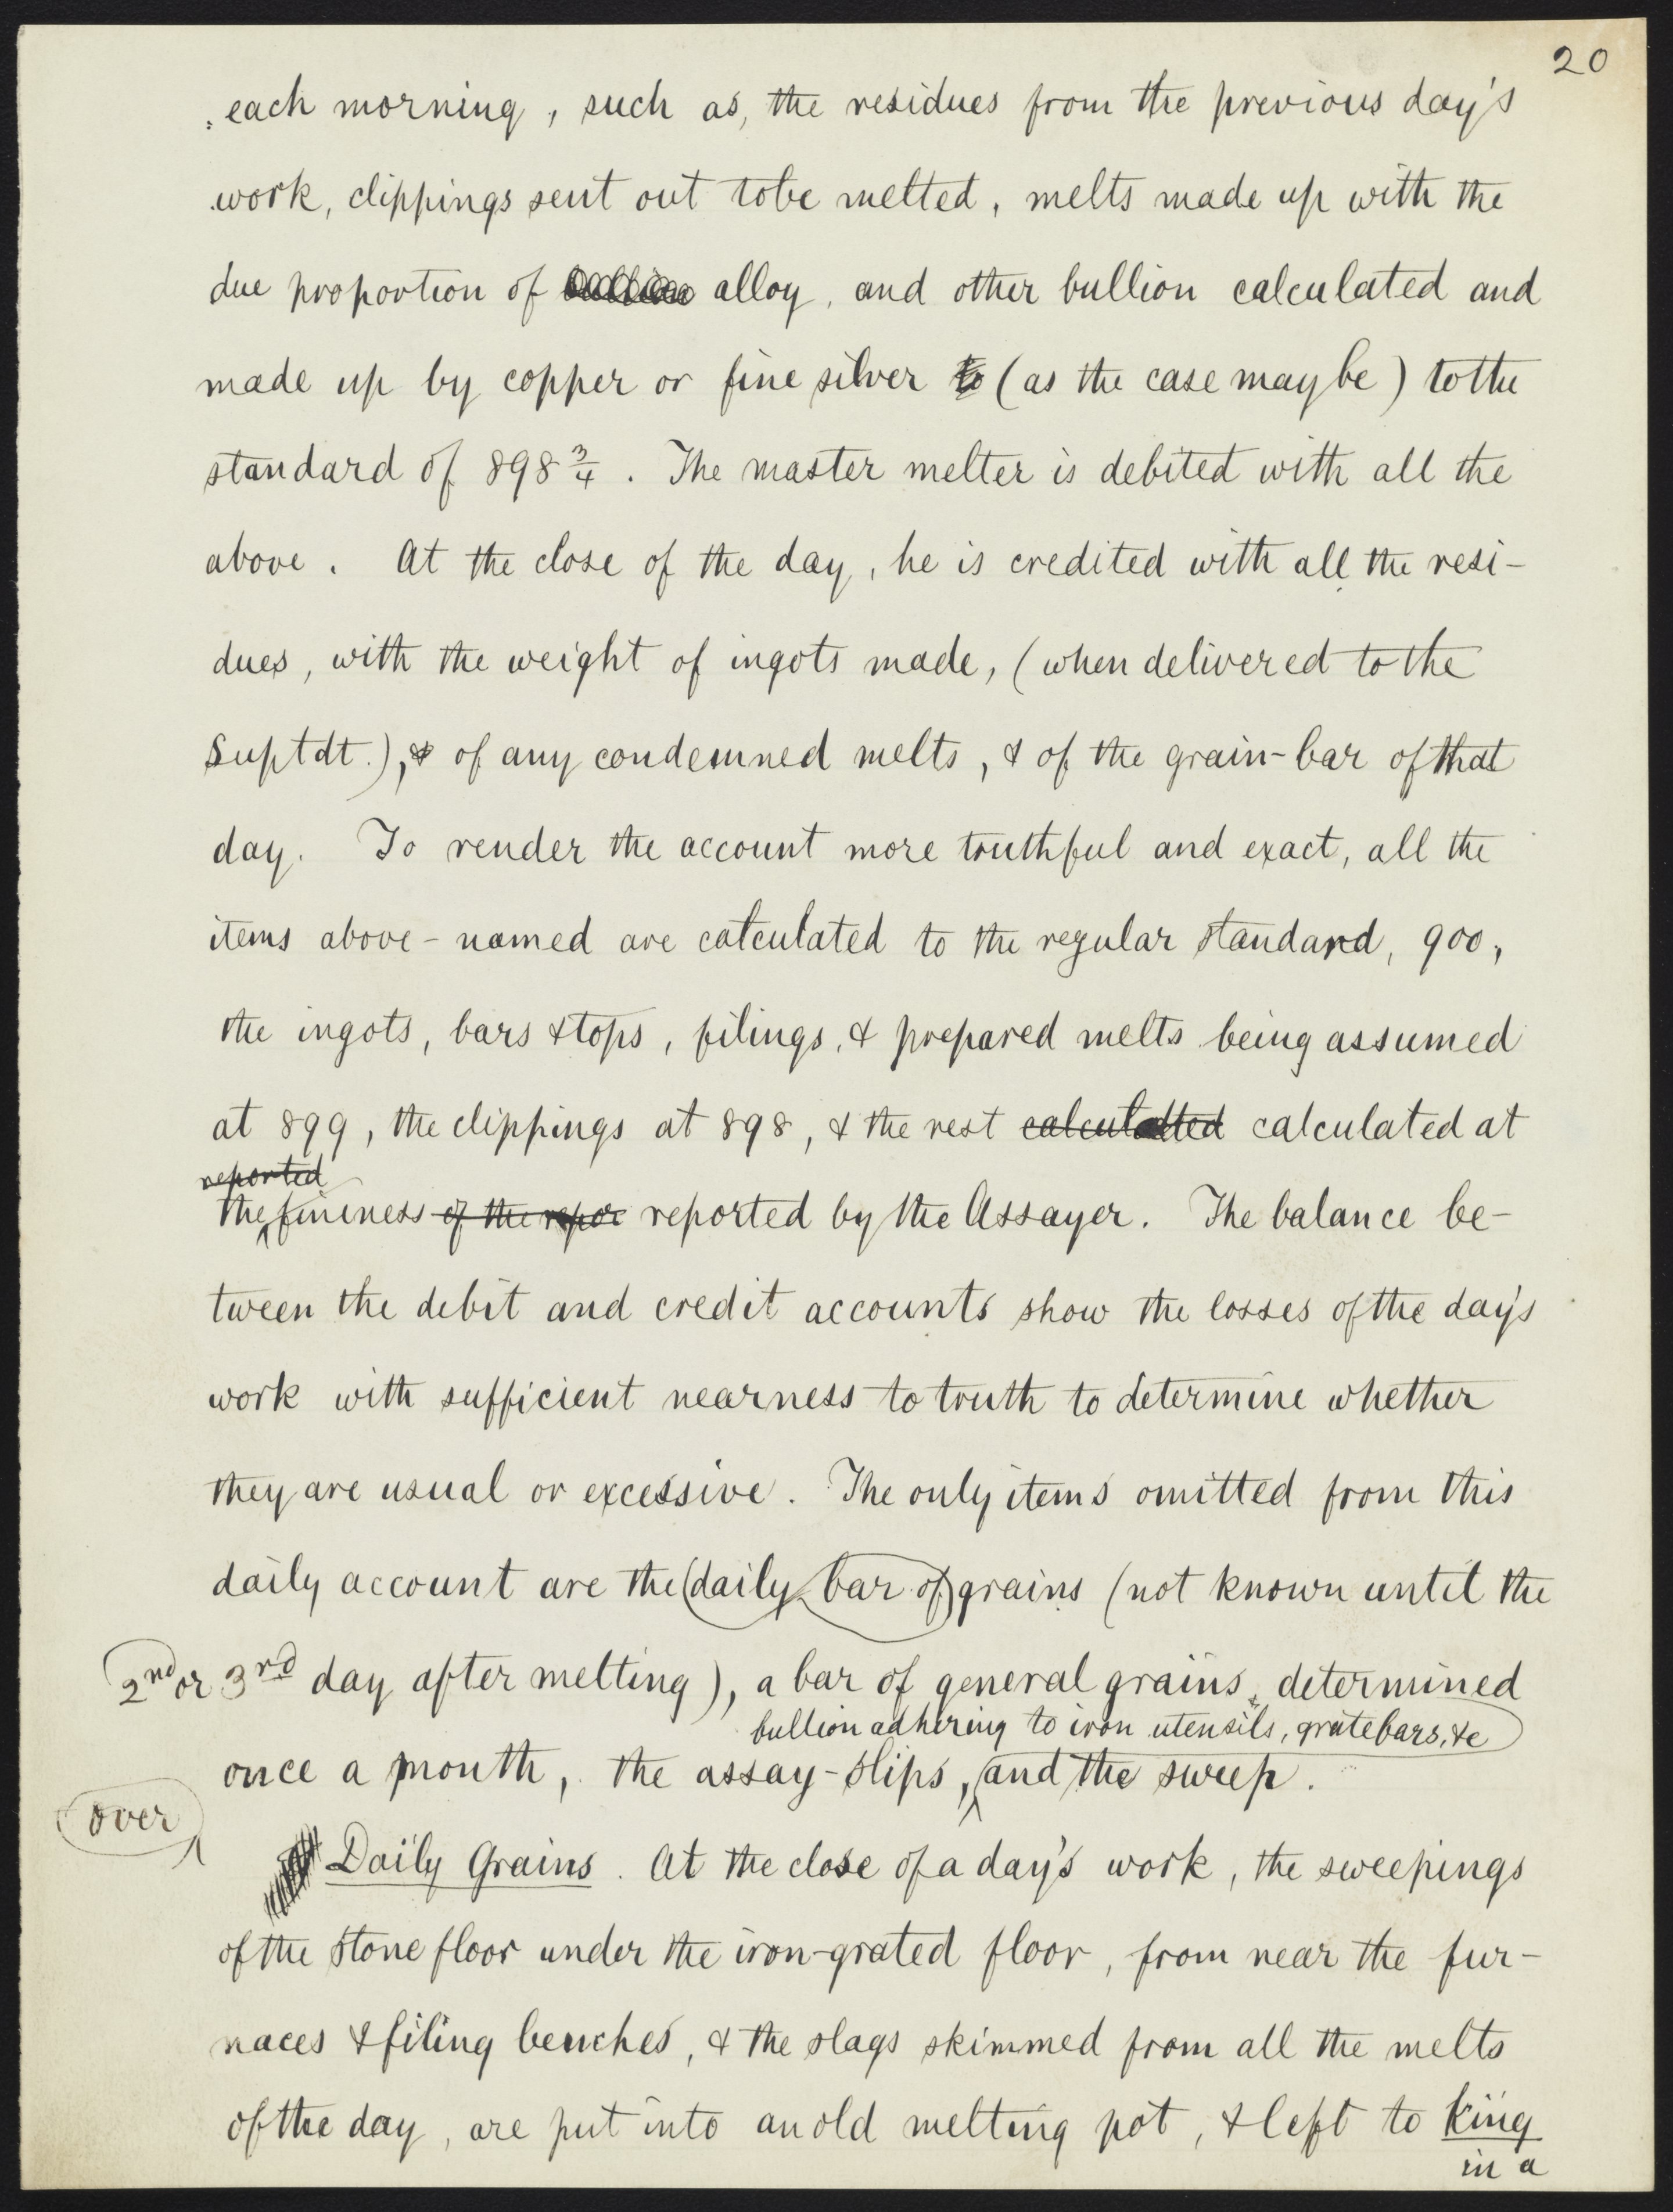 20
each morning, such as, the residues from the previous day's
work, clippings sent out to be melted, melts made up with the
due proportion of bullion alloy, and other bullion calculated and
made up by copper or fine silver to (as the case may be) to the
standard of 898 3/4. The master melter is debited with all the
above. At the close of the day, he is credited with all the resi-
dues, with the weight of ingots made, (when delivered to the
Suptdt.), & of any condemned melts, & of the grain-bar of that
day. To render the account more truthful and exact, all the
items above-named are calculated to the regular standard, 900,
the ingots, bars & tops, filings, & prepared melts being assumed
at 899, the clippings at 898, & the rest calculatted calculated at
reported
the fineness of the repor reported by the Assayer. The balance be-
tween the debit and credit accounts show the losses of the day's
work with sufficient nearness to truth to determine whether
they are usual or excessive. The only items omitted from this
daily account are the (daily bar of) grains (not known until the
2nd or 3rd day after melting), a bar of general grains, determined
bullion adhering to iron utensils, gratebars, &c
once a month, the assay-slips, and the sweep.
over
Daily Grains. At the close of a day's work, the sweepings
of the stone floor under the iron-grated floor, from near the fur-
naces & filing benches, & the slags skimmed from all the melts
of the day, are put into an old melting pot, & left to king
in a